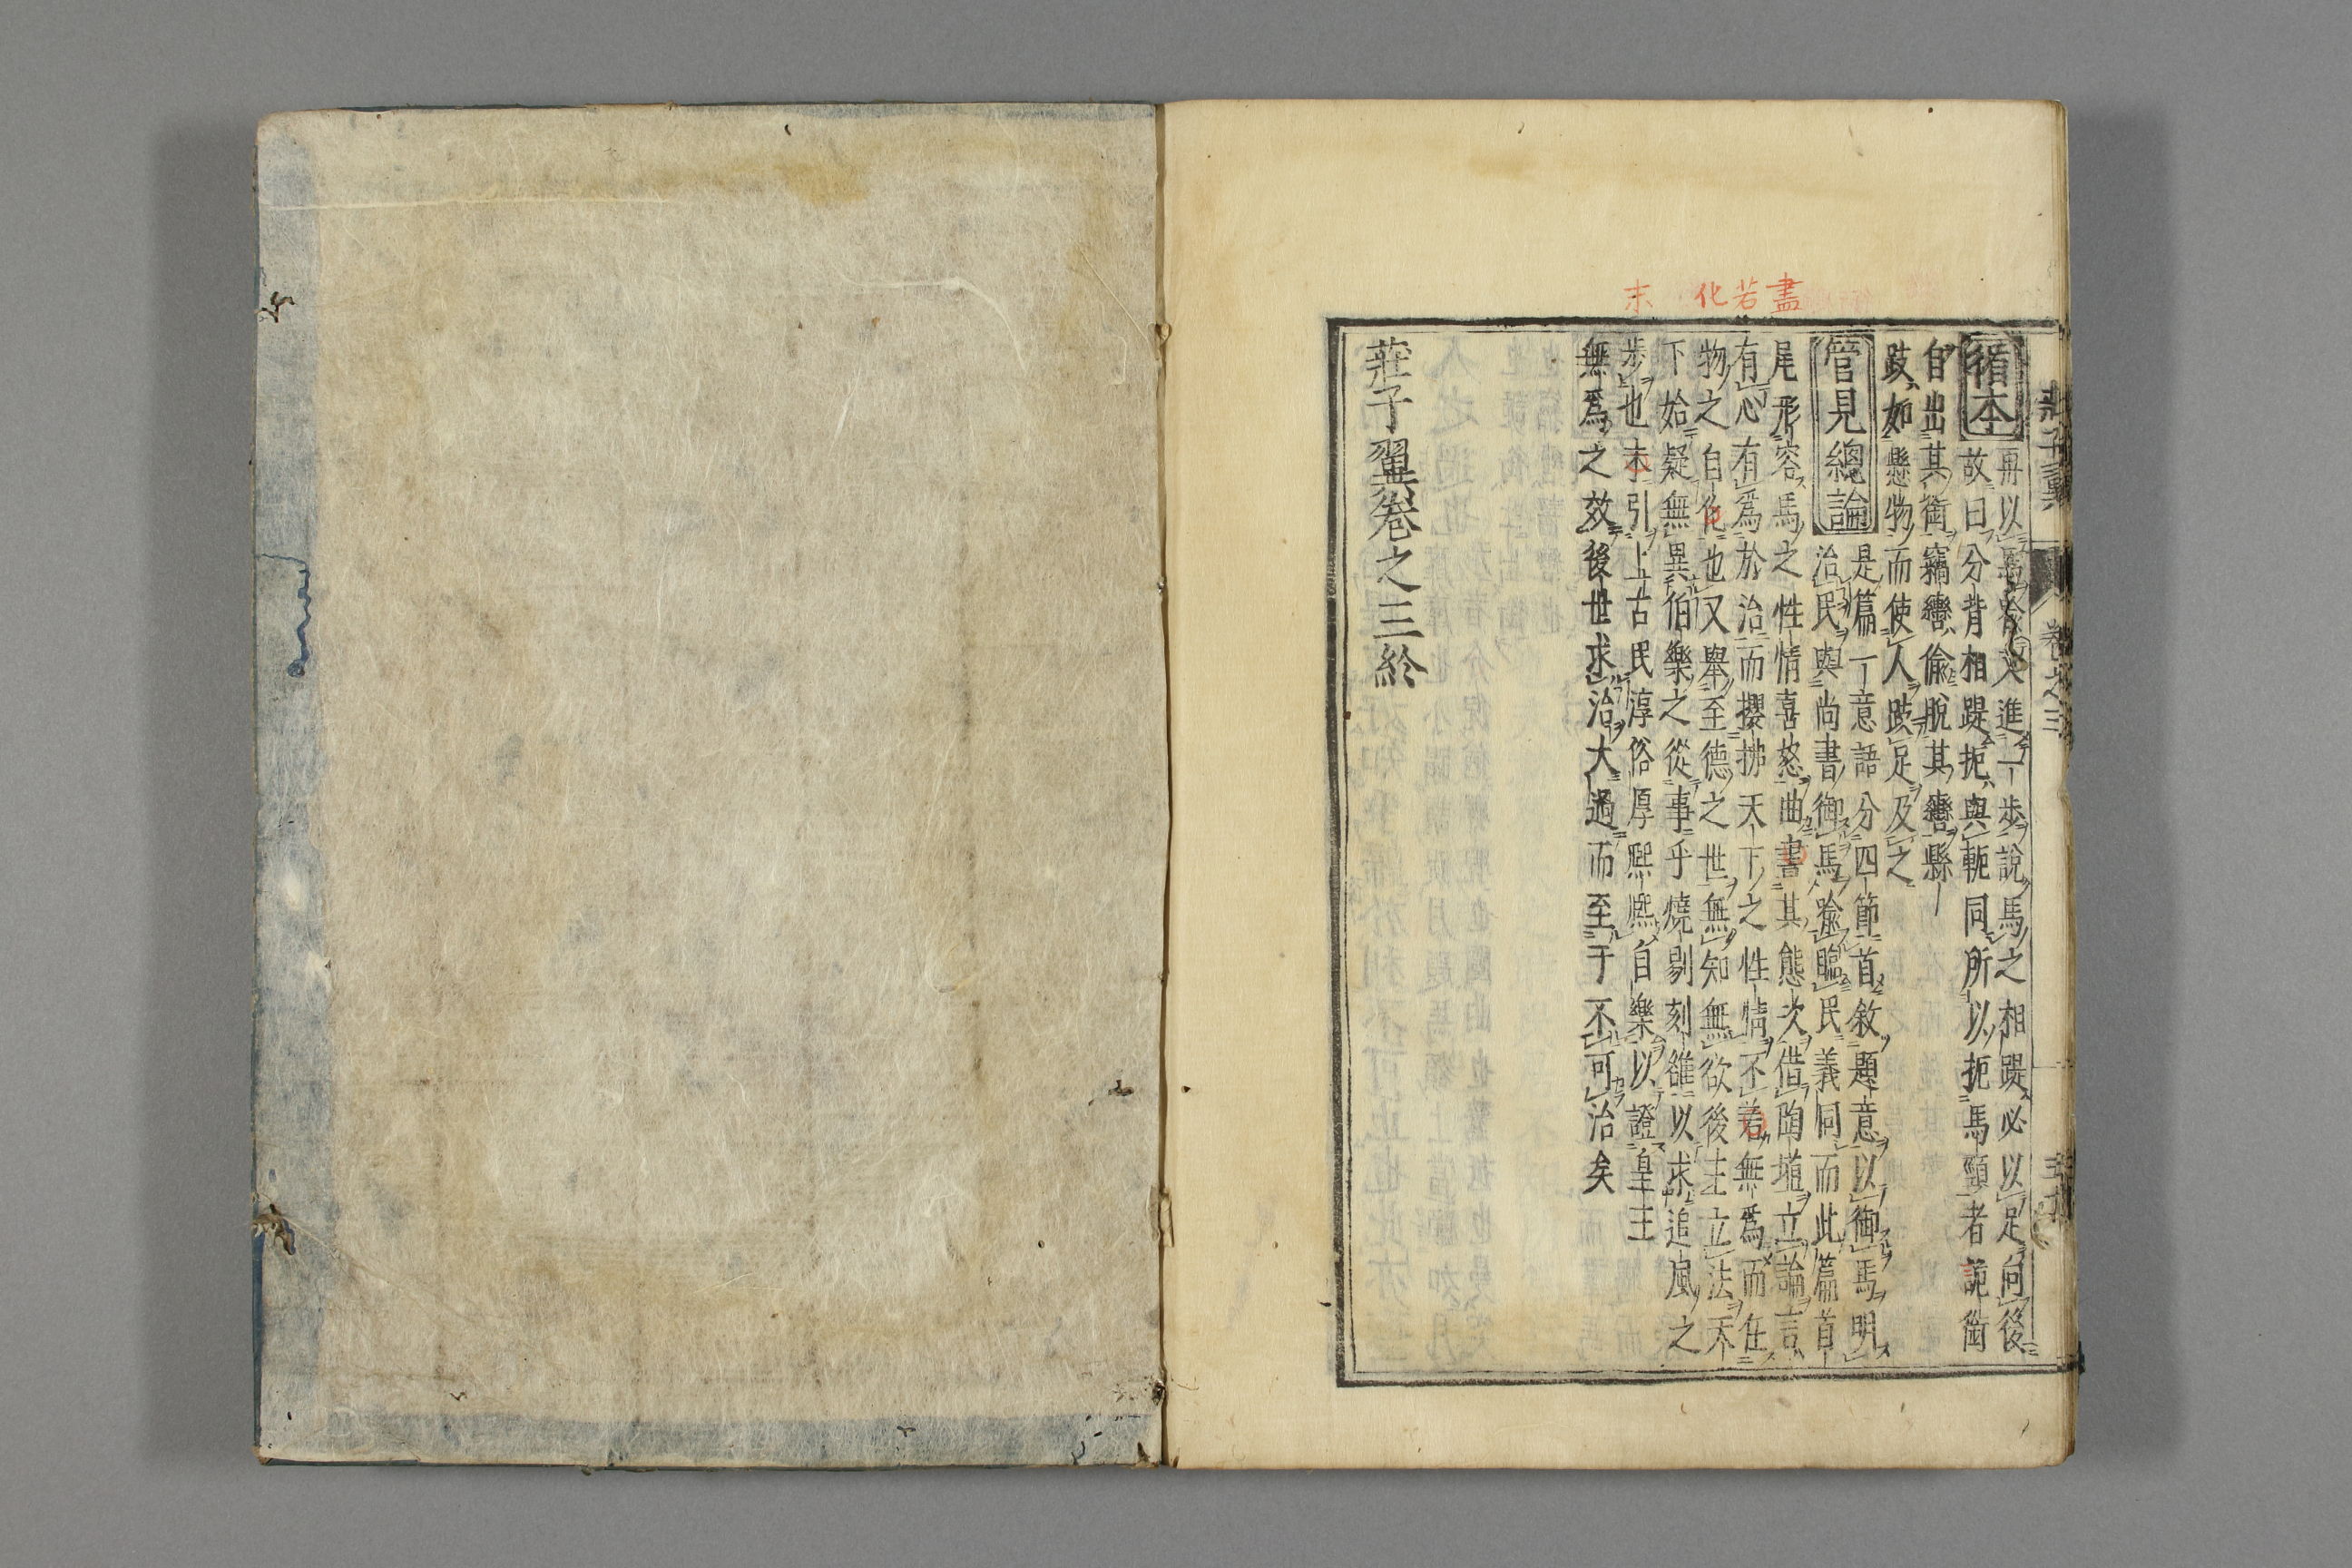 末　化若盡
莊子翼　卷之三
循本
再以馬敘文進一步說馬之相踶必以足向後
故曰分背相踶扼與軛同所以扼馬頸者詭銜
自出其銜竊轡偷脫其轡縣
跂如懸物而使人跂足及之
管見總論
是篇一意語分四節首敘題意以御馬明
治民與尚書御馬臨民義同而此篇首
尾形容馬之性情喜怒曲書其態次借陶埴立論言
有心有爲於治而攖拂天下之性情不着無爲而任
物之自化也又舉至德之世無知無欲後主立法天
下始疑無異伯樂之從事乎燒剔刻雒以求追風之
步也末引上古民淳俗厚熙熙自樂以證皇王
無爲之效後世求治大過而至于不可治矣
莊子翼卷之三終